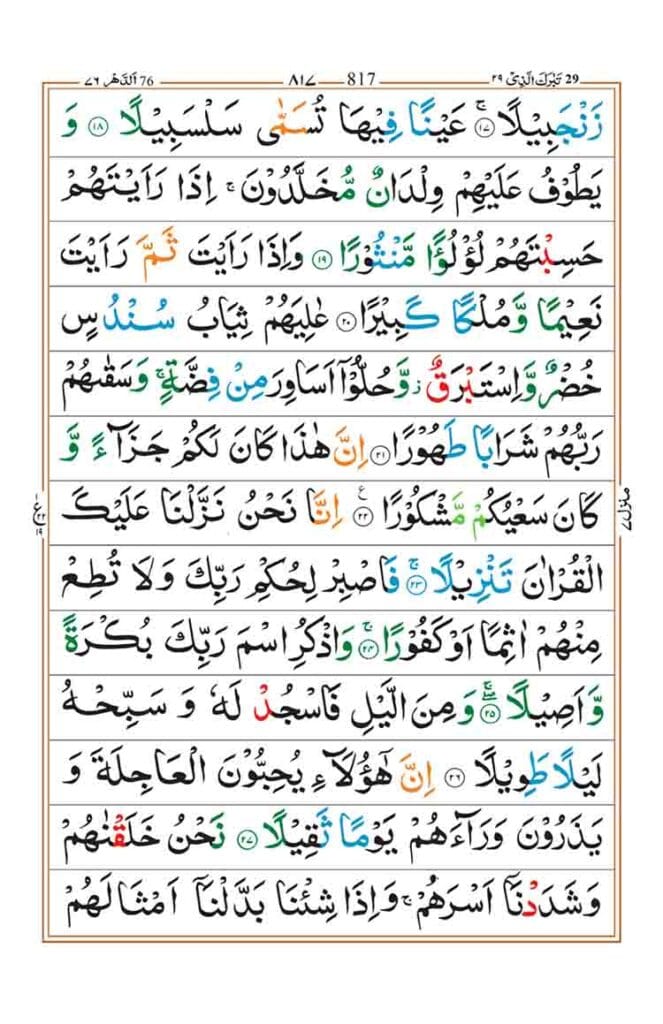 29 تَبٰرَكَ الَّذِىْ ٢٩
817 ٨١٧
76 اَلدَّهْر ٧٦
زَنْجَبِيْلًا ۚ ﴿١٧﴾ عَيْنًا فِيْهَا تُسَمّٰى سَلْسَبِيْلًا ﴿١٨﴾ وَ
يَطُوْفُ عَلَيْهِمْ وِلْدَانٌ مُّخَلَّدُوْنَ ۚ اِذَا رَاَيْتَهُمْ
حَسِبْتَهُمْ لُؤْلُؤًا مَّنْثُوْرًا ﴿١٩﴾ وَاِذَا رَاَيْتَ ثَمَّ رَاَيْتَ
نَعِيْمًا وَّمُلْكًا كَبِيْرًا ﴿٢٠﴾ عٰلِيَهُمْ ثِيَابُ سُنْدُسٍ
خُضْرٌ وَّاِسْتَبْرَقٌ ز وَّحُلُّوْٓا اَسَاوِرَ مِنْ فِضَّةٍ ۚ وَسَقٰىهُمْ
رَبُّهُمْ شَرَابًا طَهُوْرًا ﴿٢١﴾ اِنَّ هٰذَا كَانَ لَكُمْ جَزَآءً وَّ
كَانَ سَعْيُكُمْ مَّشْكُوْرًا ﴿٢٢﴾ ع اِنَّا نَحْنُ نَزَّلْنَا عَلَيْكَ
الْقُرْاٰنَ تَنْزِيْلًا ۚ ﴿٢٣﴾ فَاصْبِرْ لِحُكْمِ رَبِّكَ وَلَا تُطِعْ
مِنْهُمْ اٰثِمًا اَوْ كَفُوْرًا ۚ ﴿٢٤﴾ وَاذْكُرِ اسْمَ رَبِّكَ بُكْرَةً
وَّاَصِيْلًا ۖۚ ﴿٢٥﴾ وَمِنَ الَّيْلِ فَاسْجُدْ لَهٗ وَ سَبِّحْهُ
لَيْلًا طَوِيْلًا ﴿٢٦﴾ اِنَّ هٰٓؤُلَآءِ يُحِبُّوْنَ الْعَاجِلَةَ وَ
يَذَرُوْنَ وَرَآءَهُمْ يَوْمًا ثَقِيْلًا ﴿٢٧﴾ نَحْنُ خَلَقْنٰهُمْ
وَشَدَدْنَآ اَسْرَهُمْ ۚ وَاِذَا شِئْنَا بَدَّلْنَآ اَمْثَالَهُمْ
منزل ٧
ع ٢٢ ١٩